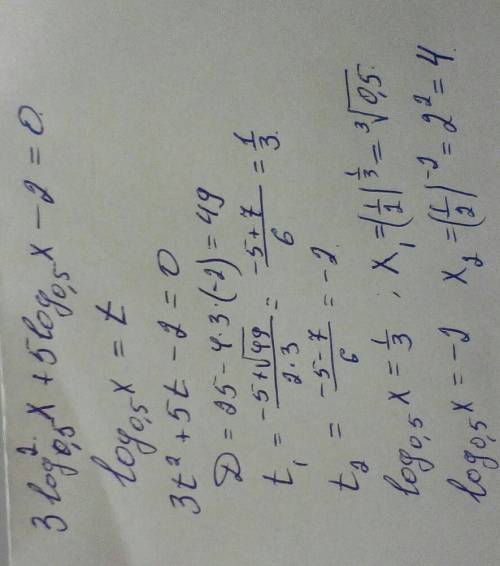 3 log²₀,₅ x + 5 log₀,₅ x − 2 = 0.
log₀,₅ x = t
3t² + 5t − 2 = 0
D = 25 − 4·3·(−2) = 49
t₁ = (−5+√49)/(2·3) = (−5+7)/6 = 1/3.
t₂ = (−5−7)/6 = −2.
log₀,₅ x = 1/3 ; x₁ = (1/2)^(1/3) = ∛0,5.
log₀,₅ x = −2 x₂ = (1/2)^(−2) = 2² = 4.